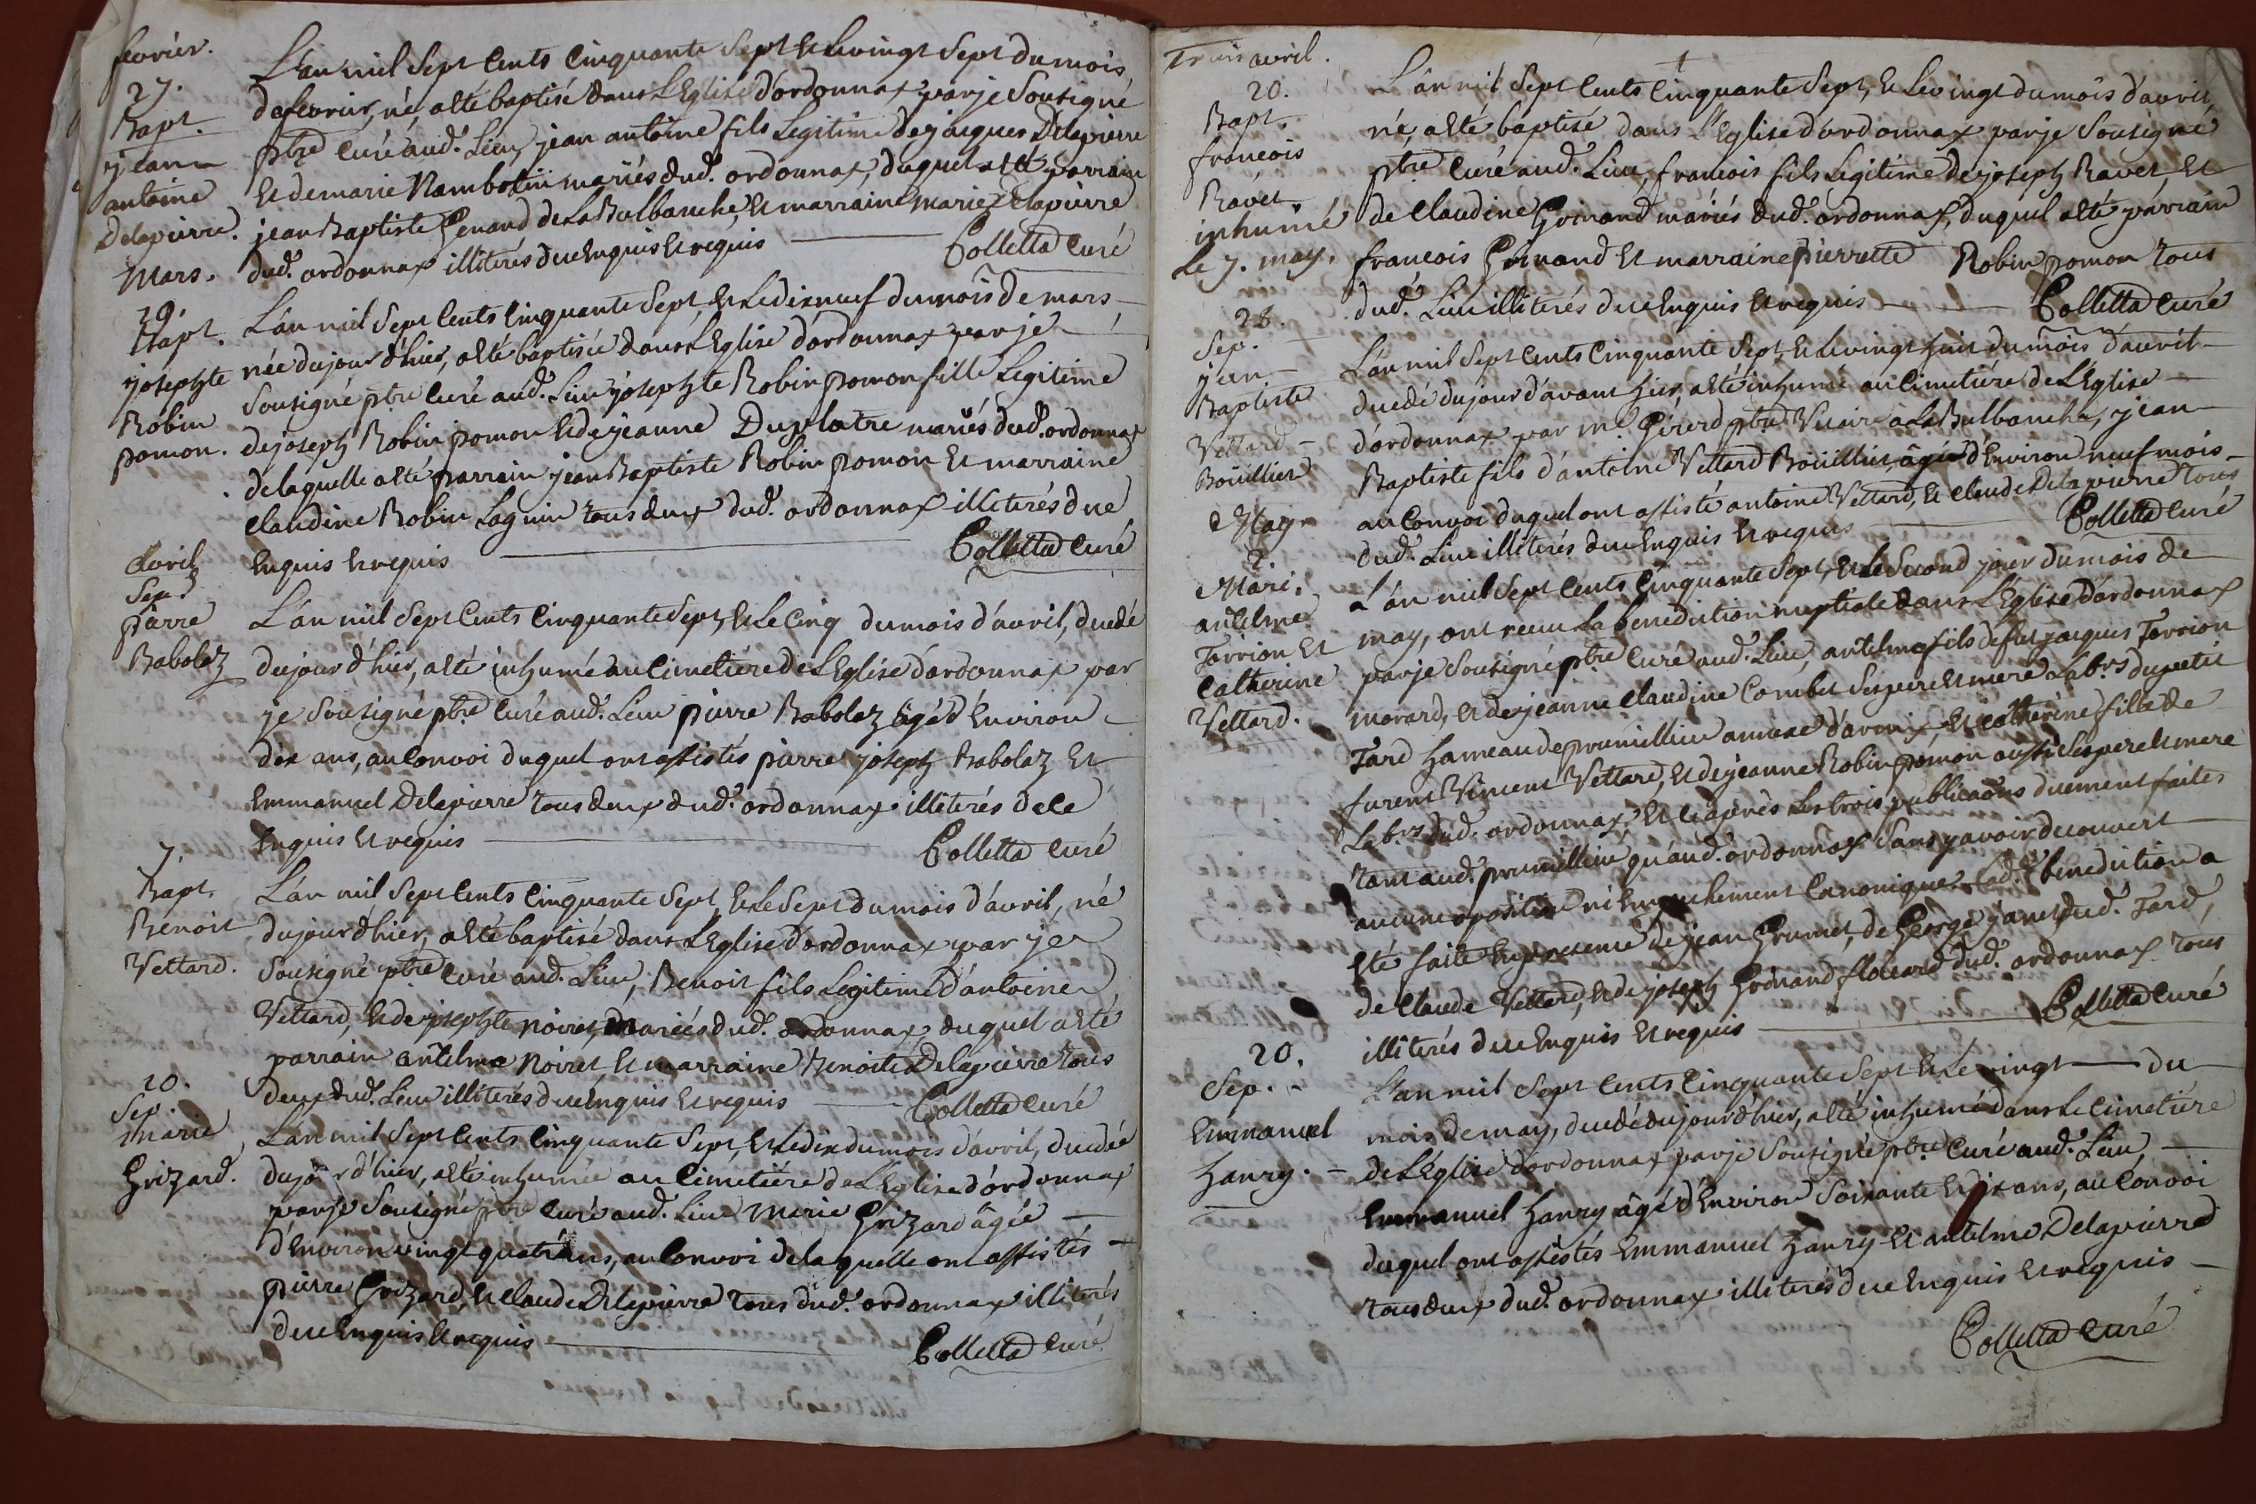 fevrier.
27.
Bapt.
jean
antoine
Delapierre.
L'an mil sept cents cinquante sept et le vingt sept du mois
de fevrier, né, a eté baptisé dans L'Eglise d'ordonnax par je sousigné
ptre curé aud. Lieu, jean antoine fils Legitime de jacques Delapierre
et de marie Nambotin mariés dud. ordonnax, duquel a eté parrain
jean Baptiste Genand de La Balbanche, et marraine marie Delapierre
dud. ordonnax illiterés de ce enquis et requis Colletta curé
Mars.
19.
Bapt.
josephte
Robin
pomon.
L'an mil sept cents cinquante sept, et le dixneuf du mois de mars
née du jour d'hier, a eté baptisée dans L'Eglise d'ordonnax par je
sousigné ptre curé aud. Lieu josephte Robin pomon fille Legitime
de joseph Robin pomon et de jeanne Duplatre mariés dud. ordonnax
de laquelle a eté parrain jean Baptiste Robin pomon et marraine
claudine Robin Laguin tous deux dud. ordonnax illiterés de ce
enquis et requis Colletta curé
Avril
Sep.
pierre
Babolaz
L'an mil sept cents cinquante sept, et le cinq du mois d'avril, decedé
du jour d'hier, a eté inhumé au cimetière de L'Eglise d'ordonnax par
je sousigné ptre curé aud. Lieu pierre Babolaz âgé d'environ
dix ans, au convoi duquel ont assistés pierre joseph Babolaz et
emmanuel Delapierre tous deux dud. ordonnax illiterés de ce
enquis et requis Colletta curé
7.
Bapt.
Benoit
Vettard.
L'an mil sept cents cinquante sept, et le sept du mois d'avril, né
du jour d'hier, a eté baptisé dans L'Eglise d'ordonnax par je
sousigné ptre curé aud. Lieu, Benoit fils Legitime d'antoine
Vettard, et de josephte noiret, mariés dud. ordonnax, duquel a eté
parrain antelme noiret et marraine Benoite Delapierre tous
deux dud. Lieu illiterés de ce enquis et requis Colletta curé
10.
Sep.
marie
Grizard.
L'an mil sept cents cinquante sept, et le dix du mois d'avril, decedée
du jour d'hier, a eté inhumée au cimetière de L'Eglise d'ordonnax
par je sousigné ptre curé aud. Lieu marie Grizard âgée
d'environ vingt quatre ans, au convoi de laquelle ont assistés
pierre Grizard, et claude Delapierre tous dud. ordonnax illiterés
de ce enquis et requis Colletta curé
avril.
20.
Bapt.
francois
Ravet.
inhumé
le 7. may.
L'an mil sept cents cinquante sept, et le vingt du mois d'avril,
né, a eté baptisé dans L'Eglise d'ordonnax par je sousigné
ptre curé aud. Lieu, francois fils Legitime de joseph Ravet, et
de claudine Grinand mariés dud. ordonnax, duquel a eté parrain
francois Grinand et marraine pierrette Robin pomon tous
dud. Lieu illiterés de ce enquis et requis Colletta curé
28.
Sep.
jean
Baptiste
Vettard
Boüillier
L'an mil sept cents cinquante sept, et le vingt huit du mois d'avril
decedé du jour d'avant hier, a eté inhumé au cimetière de L'Eglise
d'ordonnax par me Girerd ptre vicaire à La Balbanche, jean
Baptiste fils d'antoine Vettard Boüillier âgé d'environ neuf mois
au convoi duquel ont assisté antoine Vettard, et claude Delapierre tous
dud. Lieu illiterés de ce enquis et requis Colletta curé
May
2
Mari.
antelme
Torrion et
catherine
Vettard.
L'an mil sept cents cinquante sept, et le second jour du mois de
may, ont receu La benediction nuptiale dans L'Eglise d'ordonnax
par je sousigné ptre curé aud. Lieu, antelme fils de fut jacques Torrion
morard, et de jeanne claudine Combet ses pere et mere Labrs du petit
Tard hameau de premillieu annexe d'arandas, et catherine fille de
furent Vincent Vettard, et de jeanne Robin pomon aussi ses pere et mere
Labrs dud. ordonnax, et ce après Les trois publicaons duement faites
tant aud. premillieu qu'aud. ordonnax sans y avoir decouvert
aucune oposition ni empechement canonique. Lad. benediction a
eté faite en presence de jean Grumet, de George janet dud. Tard,
de claude Vettard, et de joseph Grinand flocard dud. ordonnax tous
illiterés de ce enquis et requis Colletta curé
20.
Sep.
Emmanuel
hanry.
L'an mil sept cents cinquante sept et le vingt du
mois de may, decedé du jour d'hier, a eté inhumé dans le cimetière
de L'Eglise d'ordonnax par je sousigné ptre curé aud. Lieu,
emmanuel hanry âgé d'environ soixante et dix ans, au convoi
duquel ont assistés emmanuel hanry et antelme Delapierre
tous deux dud. ordonnax illiterés de ce enquis et requis
Colletta curé